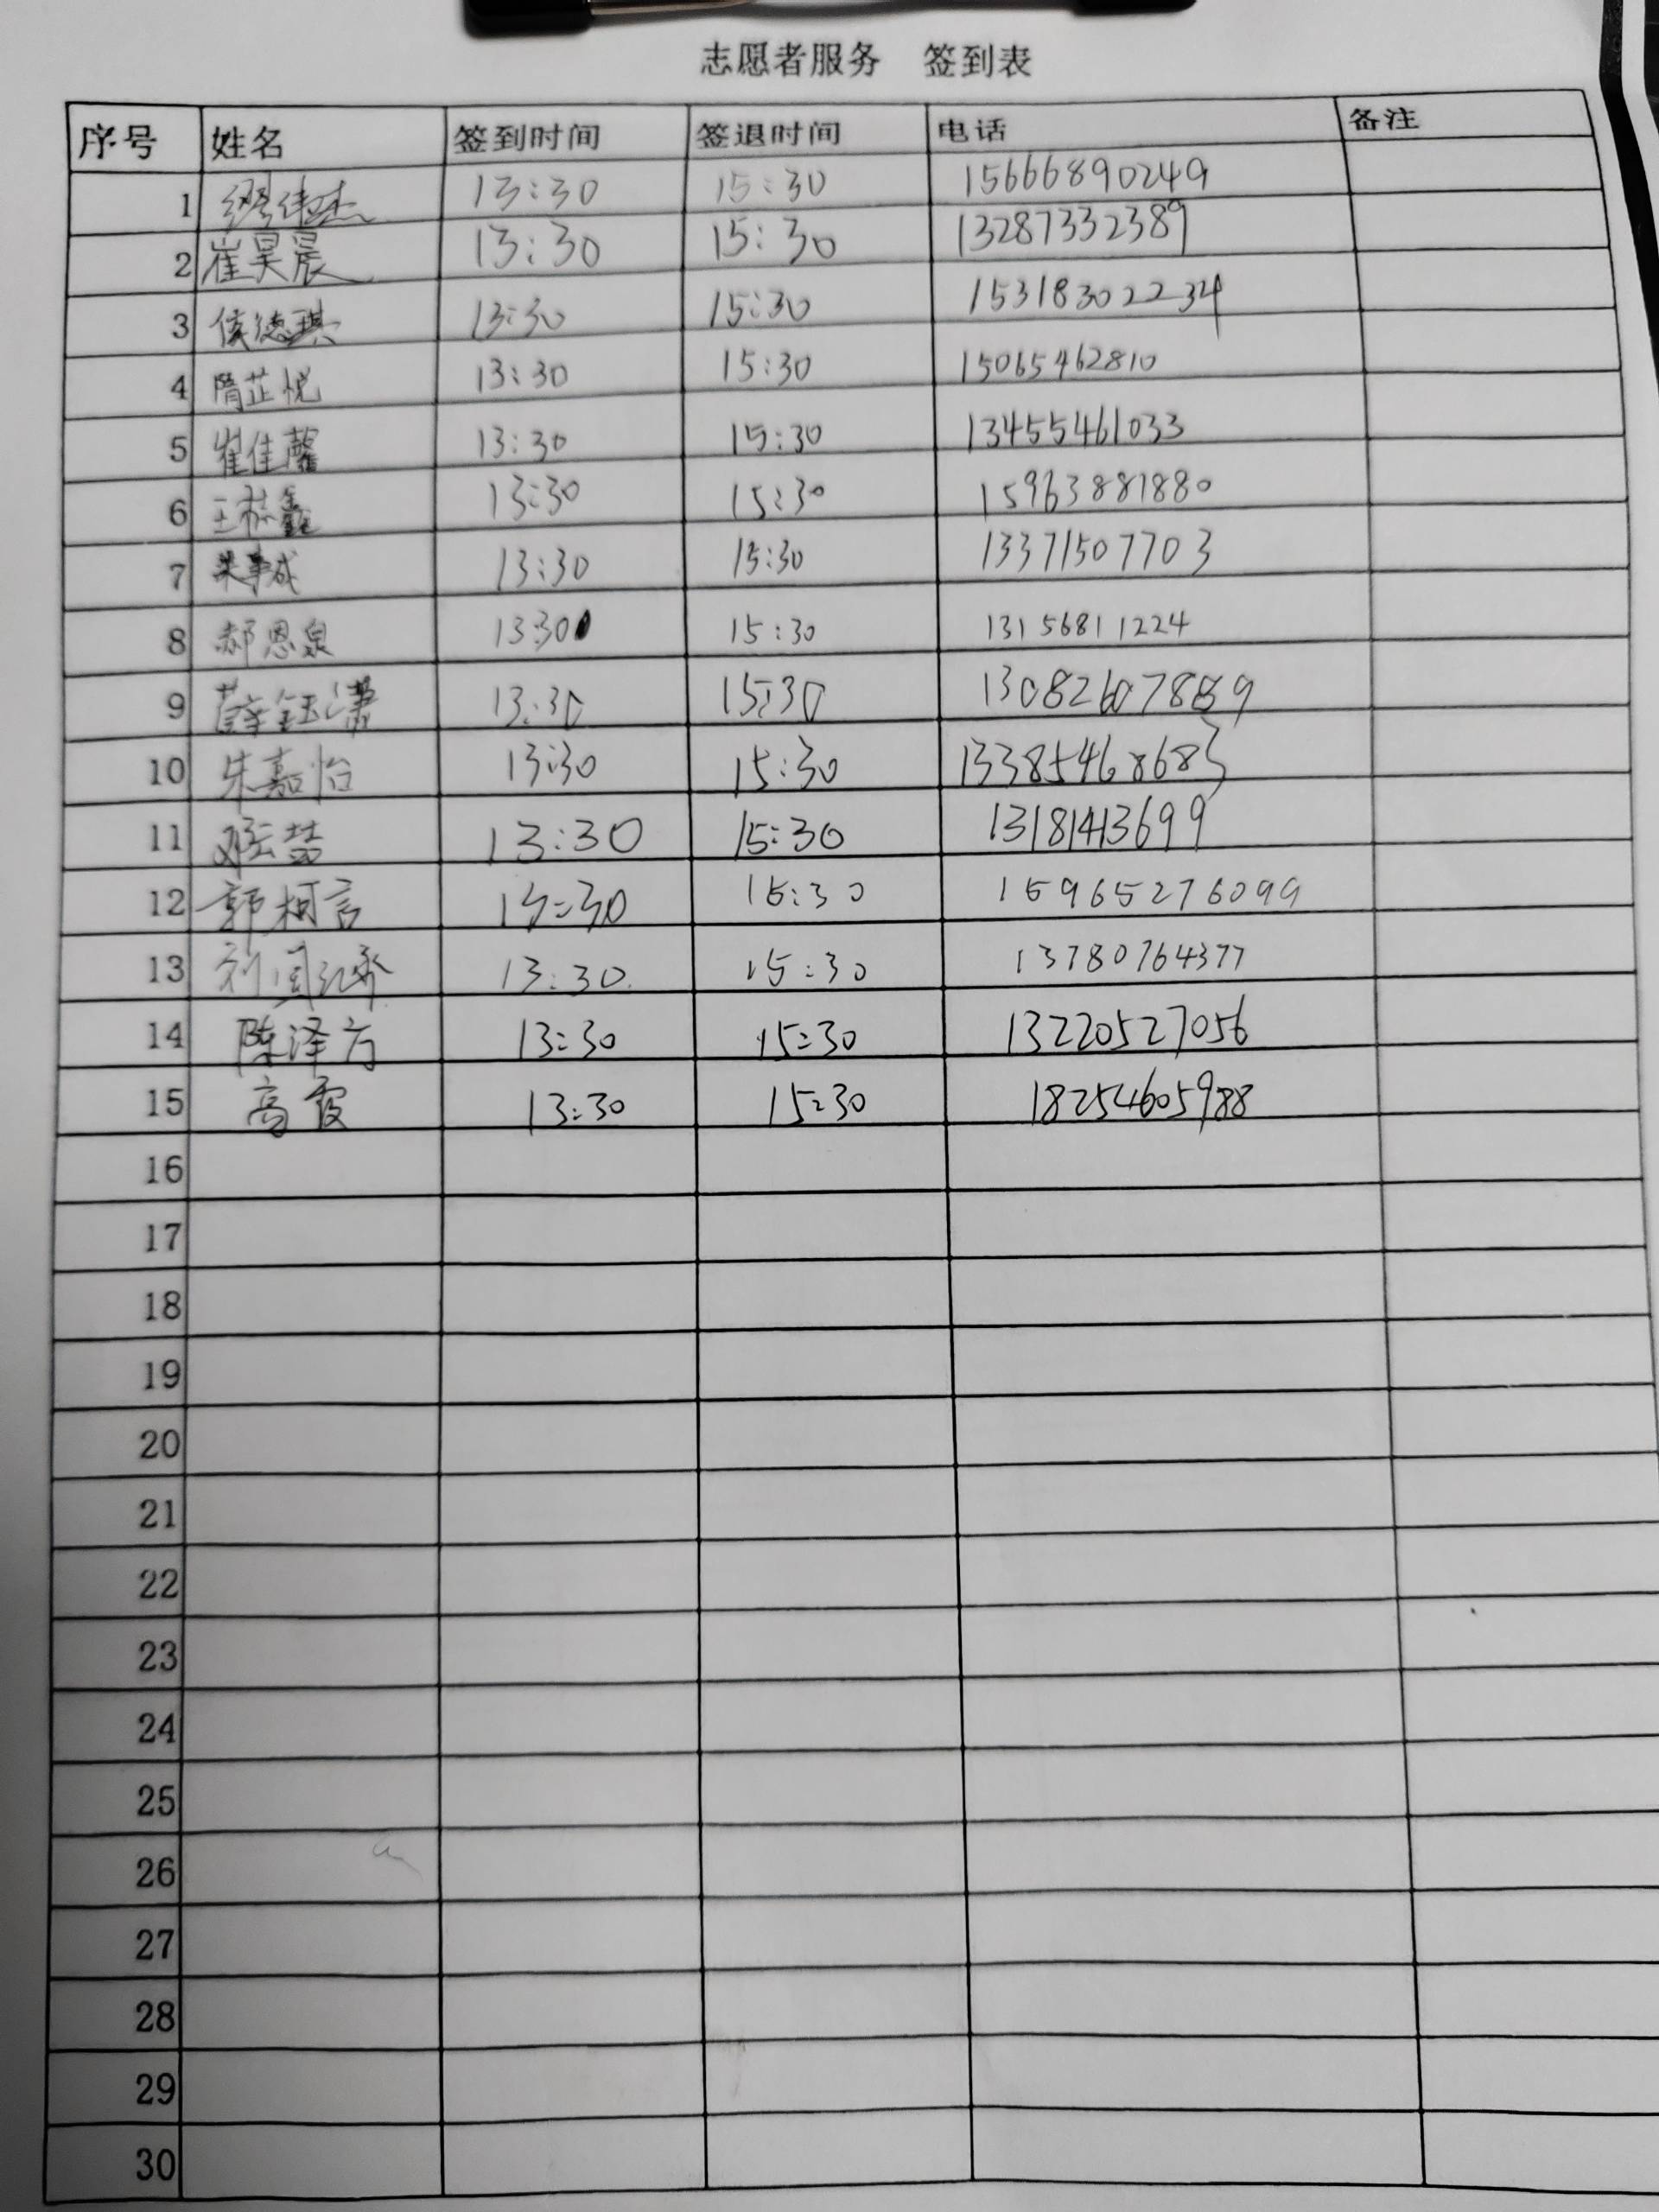 志愿者服务 签到表
序号 姓名 签到时间 签退时间 电话 备注
1 缪伟杰 13:30 15:30 15666890249
2 崔昊晨 13:30 15:30 13287332389
3 侯德琪 13:30 15:30 15318302234
4 隋芷悦 13:30 15:30 15065462810
5 崔佳馨 13:30 15:30 13455461033
6 王 鑫 13:30 15:30 15963881880
7 13:30 15:30 13371507703
8 郝恩泉 13:30 15:30 13156811224
9 薛钰潇 13:30 15:30
10 朱嘉怡 13:30 15:30 13385468683
11 13:30 15:30 13181413699
12 郭柯言 13:30 15:30 15965276099
13 刘 13:30 15:30 13780764377
14 陈泽方 13:30 15:30 13220527056
15 高霞 13:30 15:30 18254605988
16
17
18
19
20
21
22
23
24
25
26
27
28
29
30